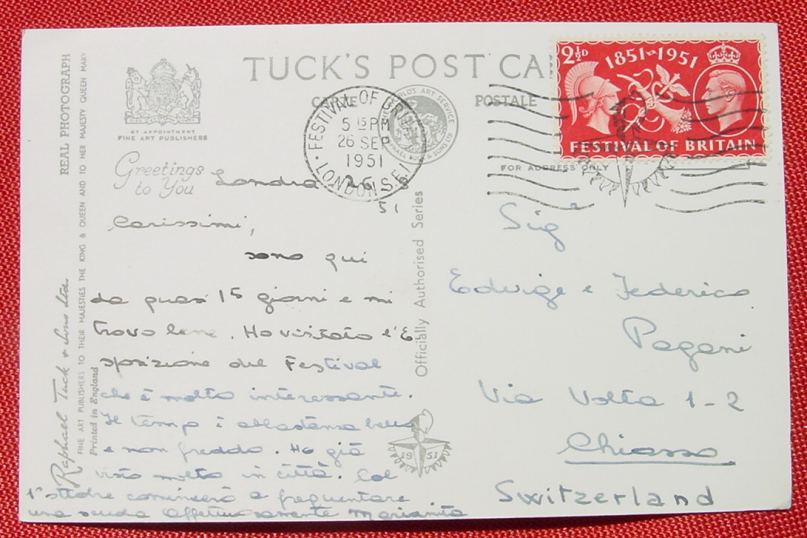 TUCK'S POST CA
CARTE POSTALE
BY APPOINTMENT
FINE ART PUBLISHERS
Greetings
to You
FESTIVAL OF BRITAIN
5 15 PM
26 SEP
1951
LONDON S.E.
2½D
1851-1951
FESTIVAL OF BRITAIN
FOR ADDRESS ONLY
REAL PHOTOGRAPH
Raphael Tuck & Sons Ltd.
FINE ART PUBLISHERS TO THEIR MAJESTIES THE KING & QUEEN AND TO HER MAJESTY QUEEN MARY
Printed in England
Officially Authorised Series
1951
Londra 26 9
51
Carissimi,
sono qui
da quasi 15 giorni e mi
trovo bene. Ho visitato l'E
sposizione del Festival
che è molto interessante.
Il tempo è abbastanza bello
e non freddo. Ho già
visto molto in città. Col
1° ottobre comincerò a frequentare
una scuola Affettuosamente Mariannita
Sig.
Edwige e Federico
Pagani
Via Volta 1-2
Chiasso
Switzerland